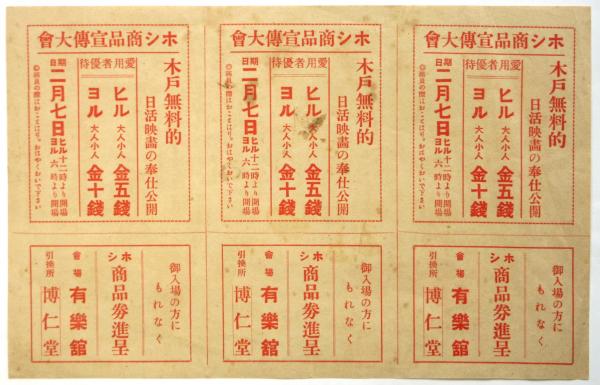 ホシ商品宣傳大會
木戸無料的
日活映畫の奉仕公開
愛用者優待
ヒル 大人小人 金五錢
ヨル 大人小人 金十錢
期日 二月七日 ヒル十二時より開場 ヨル六時より開場
◎満員の際はおことはり おはやくおいで下さい
ホシ商品宣傳大會
木戸無料的
日活映畫の奉仕公開
愛用者優待
ヒル 大人小人 金五錢
ヨル 大人小人 金十錢
期日 二月七日 ヒル十二時より開場 ヨル六時より開場
◎満員の際はおことはり おはやくおいで下さい
ホシ商品宣傳大會
木戸無料的
日活映畫の奉仕公開
愛用者優待
ヒル 大人小人 金五錢
ヨル 大人小人 金十錢
期日 二月七日 ヒル十二時より開場 ヨル六時より開場
◎満員の際はおことはり おはやくおいで下さい
御入場の方に
もれなく
ホシ商品券進呈
會場 有樂舘
引換所 博仁堂
御入場の方に
もれなく
ホシ商品券進呈
會場 有樂舘
引換所 博仁堂
御入場の方に
もれなく
ホシ商品券進呈
會場 有樂舘
引換所 博仁堂